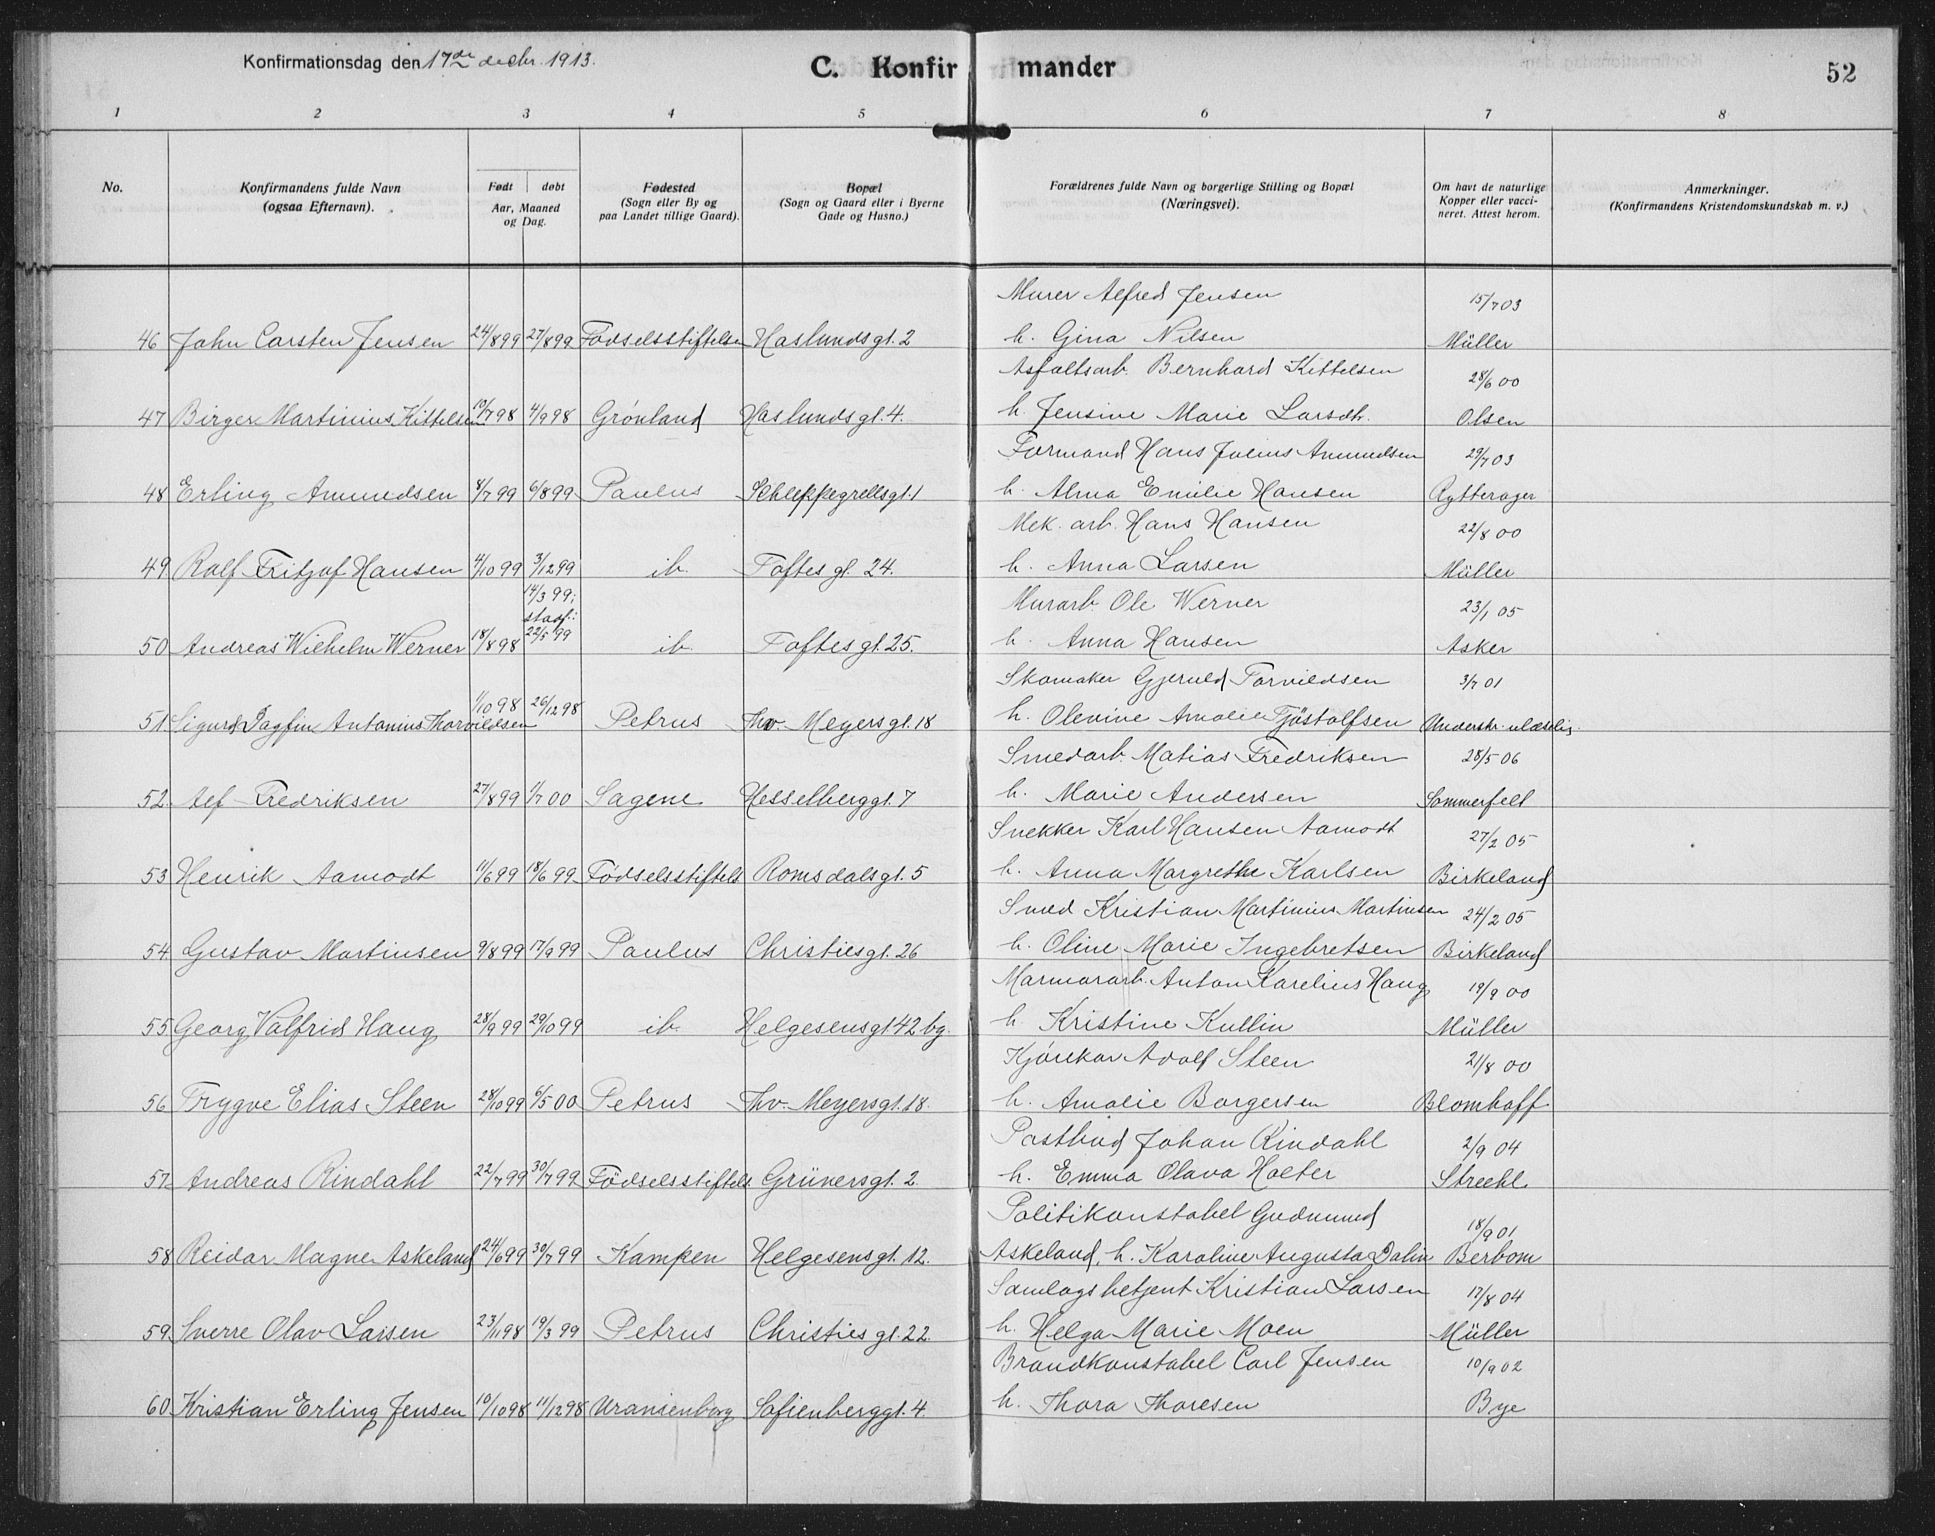 Konfirmationsdag den 17de decbr. 1913.
C. Konfirmander
52
1 2 3 4 5 6 7 8
No.
Konfirmandens fulde Navn
(ogsaa Efternavn).
Født | døbt
Aar, Maaned
og Dag.
Fødested
(Sogn eller By og
paa Landet tillige Gaard).
Bopæl
(Sogn og Gaard eller i Byerne
Gade og Husno.)
Forældrenes fulde Navn og borgerlige Stilling og Bopæl
(Næringsvei).
Om havt de naturlige
Kopper eller vacci-
neret. Attest herom.
Anmerkninger.
(Konfirmandens Kristendomskundskab m. v.)
Murer Alfred Jensen 15/7 03
46 John Carsten Jensen 24/8 99 27/8 99 Fødselsstiftelsen Haslundsgt. 2 h. Gina Nilsen Müller
Asfaltsarb. Bernhard Kittelsen 28/6 00
47 Birger Martinius Kittelsen 10/7 98 4/9 98 Grønland Haslundsgt. 4. h. Jensine Marie Larsdtr. Olsen
Formand Hans Julius Amundsen 29/7 03
48 Erling Amundsen 8/7 99 6/8 99 Paulus Schleppegrellsgt. 1 h. Alma Emilie Hansen Rytterager
Mek. arb. Hans Hansen 22/8 00
49 Rolf Fritjof Hansen 4/10 99 3/12 99 ib. Toftesgt. 24. h. Anna Larsen Müller
14/3 99; Murarb. Ole Werner 23/1 05
stadf.:
50 Andreas Wilhelm Werner 18/8 98 22/5 99 ib. Toftesgt. 25. h. Anna Hansen Asker
Skomaker Gjeruld Torvildsen 3/7 01
51. Sigurd Dagfin Antonius Thorvildsen 1/10 98 26/12 98 Petrus Thv. Meyersgt. 18 h. Olevine Amalie Tjøstolfsen Underskr. ulæselig.
Smedarb. Matias Fredriksen 28/5 06
52. Alf Fredriksen 27/8 99 1/7 00 Sagene Hesselberggt. 7 h. Marie Andersen Sommerfelt
Snekker Karl Hansen Aamodt 27/2 05
53 Henrik Aamodt 11/6 99 18/6 99 Fødselsstiftels Romsdalsgt. 5 h. Anna Margrethe Karlsen Birkeland
Smed Kristian Martinius Martinsen 24/2 05
54 Gustav Martinsen 9/8 99 17/9 99 Paulus Christiesgt. 26 h. Oline Marie Ingebretsen Birkeland
Marmorarb. Anton Karelius Haug 19/9 00
55 Georg Valfrid Haug 28/9 99 29/10 99 ib. Helgesensgt 42 bg. h. Kristine Kullin Müller
Kjørekar Adolf Steen 21/8 00
56 Trygve Elias Steen 28/10 99 6/5 00 Petrus Thv. Meyersgt. 18. h. Amalie Borgersen Blomhoff
Postbud Johan Rindahl 2/9 04
57. Andreas Rindahl 22/7 99 30/7 99 Fødselsstiftels Grünersgt. 2. h. Emma Olava Holter Strechl.
Politikonstabel Gudmund 18/9 01
58 Reidar Magne Askeland 24/6 99 30/7 99 Kampen Helgesensgt. 12. Askeland, h. Karoline Augusta Dalin Berbom
Samlagsbetjent Kristian Larsen 17/8 04
59. Sverre Olav Larsen 23/11 98 19/3 99 Petrus Christiesgt. 22. h. Helga Marie Moen Müller
Brandkonstabel Carl Jensen 10/9 02
60 Kristian Erling Jensen 10/10 98 11/12 98 Uranienborg Sofienberggt. 4. h. Thora Thoresen Bye